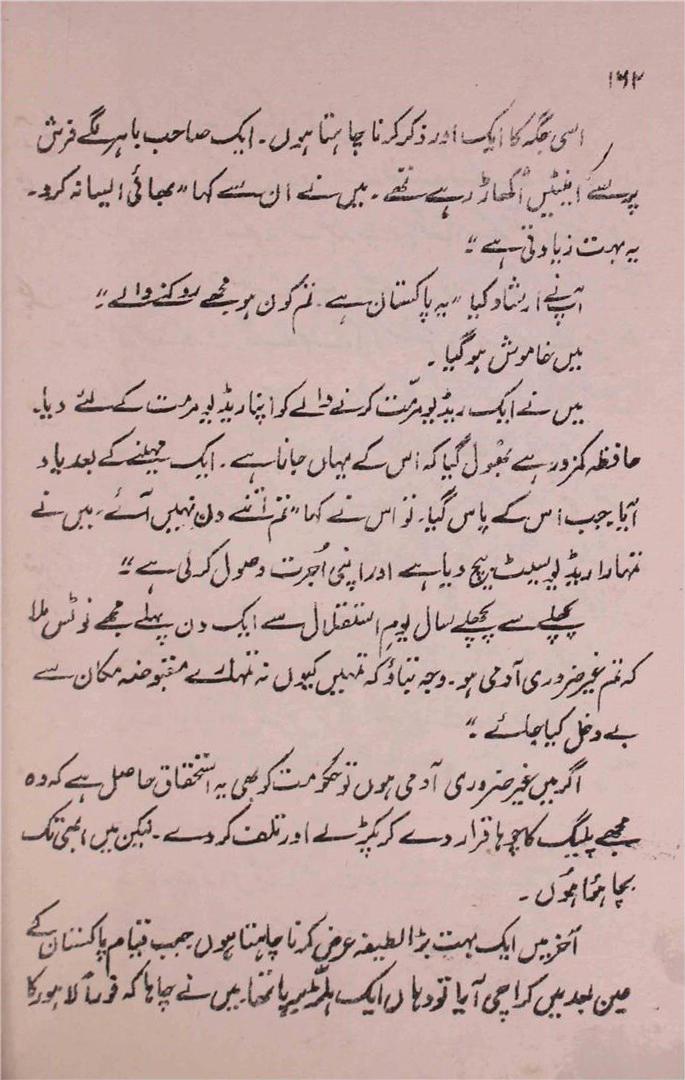 ۱۶۲
اسی جگہ کا ایک اور ذکر کرنا چاہتا ہوں۔ ایک صاحب باہر لگے فرش
پر سے اینٹیں اُکھاڑ رہے تھے۔ میں نے ان سے کہا ”بھائی ایسا نہ کرو۔
یہ بہت زیادتی ہے“
آپ نے ارشاد کیا ”یہ پاکستان ہے۔ تم کون ہو مجھے روکنے والے“
میں خاموش ہو گیا۔
میں نے ایک ریڈیو مرّمت کرنے والے کو اپنا ریڈیو مرمت کے لئے دیا۔
حافظہ کمزور ہے بھول گیا کہ اس کے یہاں جانا ہے۔ ایک مہینے کے بعد یاد
آیا جب اس کے پاس گیا۔ تو اس نے کہا ”تم اتنے دن نہیں آئے۔ میں نے
تمہارا ریڈیو سیٹ بیچ دیا ہے اور اپنی اُجرت وصول کرلی ہے“
پچھلے سے پچھلے سال یومِ استقلال سے ایک دن پہلے مجھے نوٹس ملا
کہ تم غیر ضروری آدمی ہو۔ وجہ بتاؤ کہ تمہیں کیوں نہ تمہارے مقبوضہ مکان سے
بے دخل کیا جائے۔“
اگر میں غیر ضروری آدمی ہوں تو حکومت کو بھی یہ استحقاق حاصل ہے کہ وہ
مجھے پلیگ کا چوہا قرار دے کر پکڑلے اور تلف کر دے۔ لیکن میں ابھی تک
بچا ہُوا ہُوں۔
آخر میں ایک بہت بڑا لطیفہ عرض کرنا چاہتا ہوں جب قیام پاکستان کے
عین بعد میں کراچی آیا تو وہاں ایک ہلّڑ بپا تھا۔ میں نے چاہا کہ فوراً لاہور کا